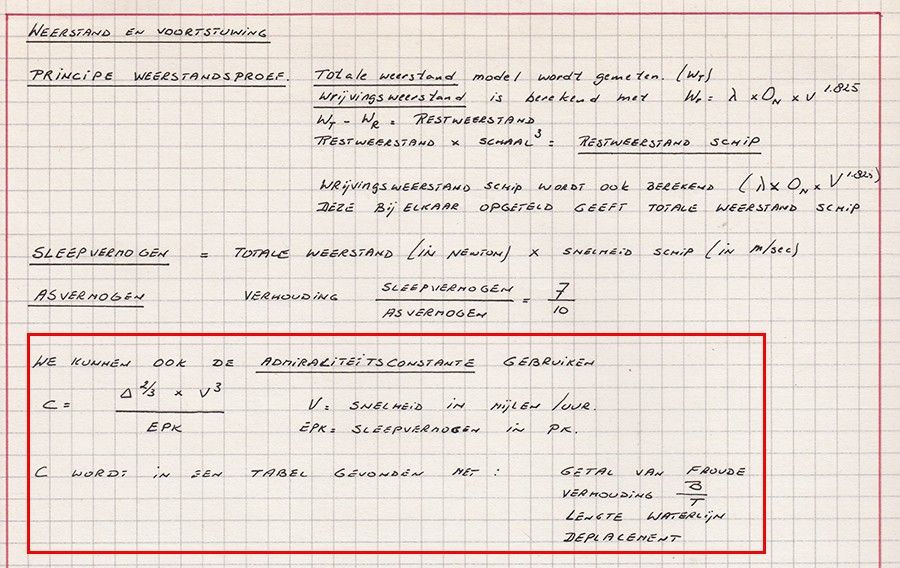 WEERSTAND EN VOORTSTUWING
PRINCIPE WEERSTANDSPROEF. Totale weerstand model wordt gemeten. (W_T)
Wrijvingsweerstand is berekend met W_r = λ × O_N × V^1.825
W_T - W_R = RESTWEERSTAND
RESTWEERSTAND × SCHAAL^3 = RESTWEERSTAND SCHIP
WRIJVINGSWEERSTAND SCHIP WORDT OOK BEREKEND (λ × O_N × V^1.825)
DEZE BIJ ELKAAR OPGETELD GEEFT TOTALE WEERSTAND SCHIP
SLEEPVERMOGEN = TOTALE WEERSTAND (IN NEWTON) × SNELHEID SCHIP (IN M/SEC)
ASVERMOGEN VERHOUDING SLEEPVERMOGEN / ASVERMOGEN = 7/10
WE KUNNEN OOK DE ADMIRALITEITSCONSTANTE GEBRUIKEN
C = Δ^2/3 × V^3 / EPK
V = SNELHEID IN MIJLEN /UUR.
EPK = SLEEPVERMOGEN IN PK.
C WORDT IN EEN TABEL GEVONDEN MET : GETAL VAN FROUDE
VERHOUDING B/T
LENGTE WATERLIJN
DEPLACEMENT